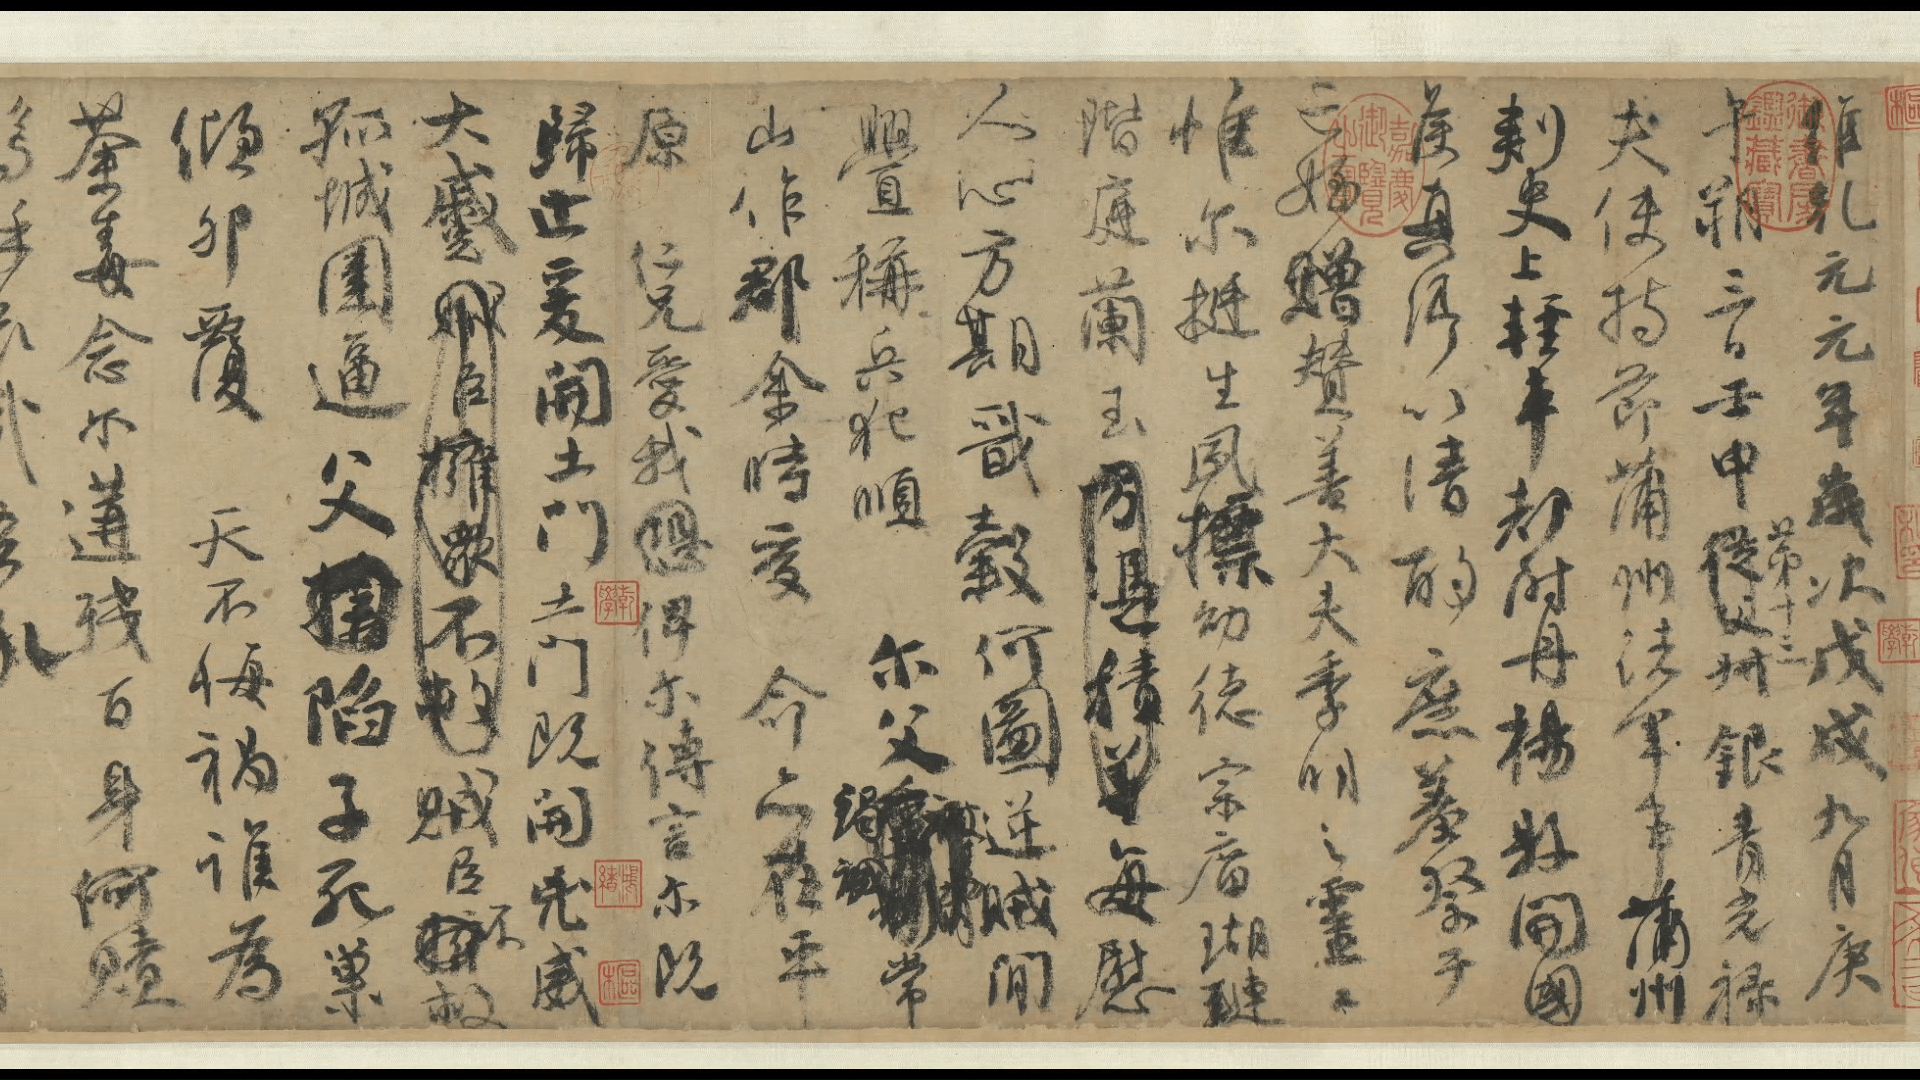 維乾元元年歲次戊戌九月庚
午朔三日壬申第十三從父叔銀青光祿
夫使持節蒲州諸軍事蒲州
刺史上輕車都尉丹楊縣開國
侯真卿以清酌庶羞祭于
亡姪贈贊善大夫季明之靈曰
惟尔挺生夙標幼德宗廟瑚璉
階庭蘭玉方憑積善每慰
人心方期戩穀何圖逆賊閒
舋稱兵犯順尔父竭誠常
山作郡余時受命亦在平
原仁兄愛我恐俾尔傳言尔既
歸止爰開土門土門既開凶威
大蹙賊臣擁眾不救賊臣不救
孤城圍逼父擒陷子死巢
傾卵覆天不悔禍誰為
荼毒念尔遘殘百身何贖
嗚乎哀哉
御書房鑑藏寶
嘉慶御覽之寶